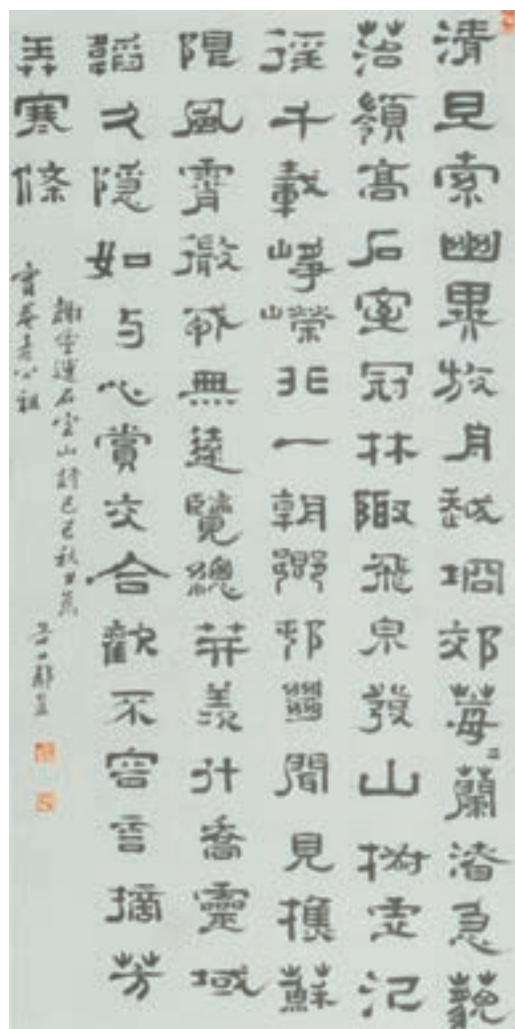 清旦索幽異放舟越坰郊莓〻蘭渚急藐
苔嶺高石室冠林陬飛泉發山椒虛泛
徑千載崢嶸非一朝鄉邨絕聞見樵蘇
限風霄微戎無遠覽總笄羨升喬靈域
韜久隱如与心賞交合歡不容言摘芳
弄寒條
謝靈運石室山詩己巳秋日